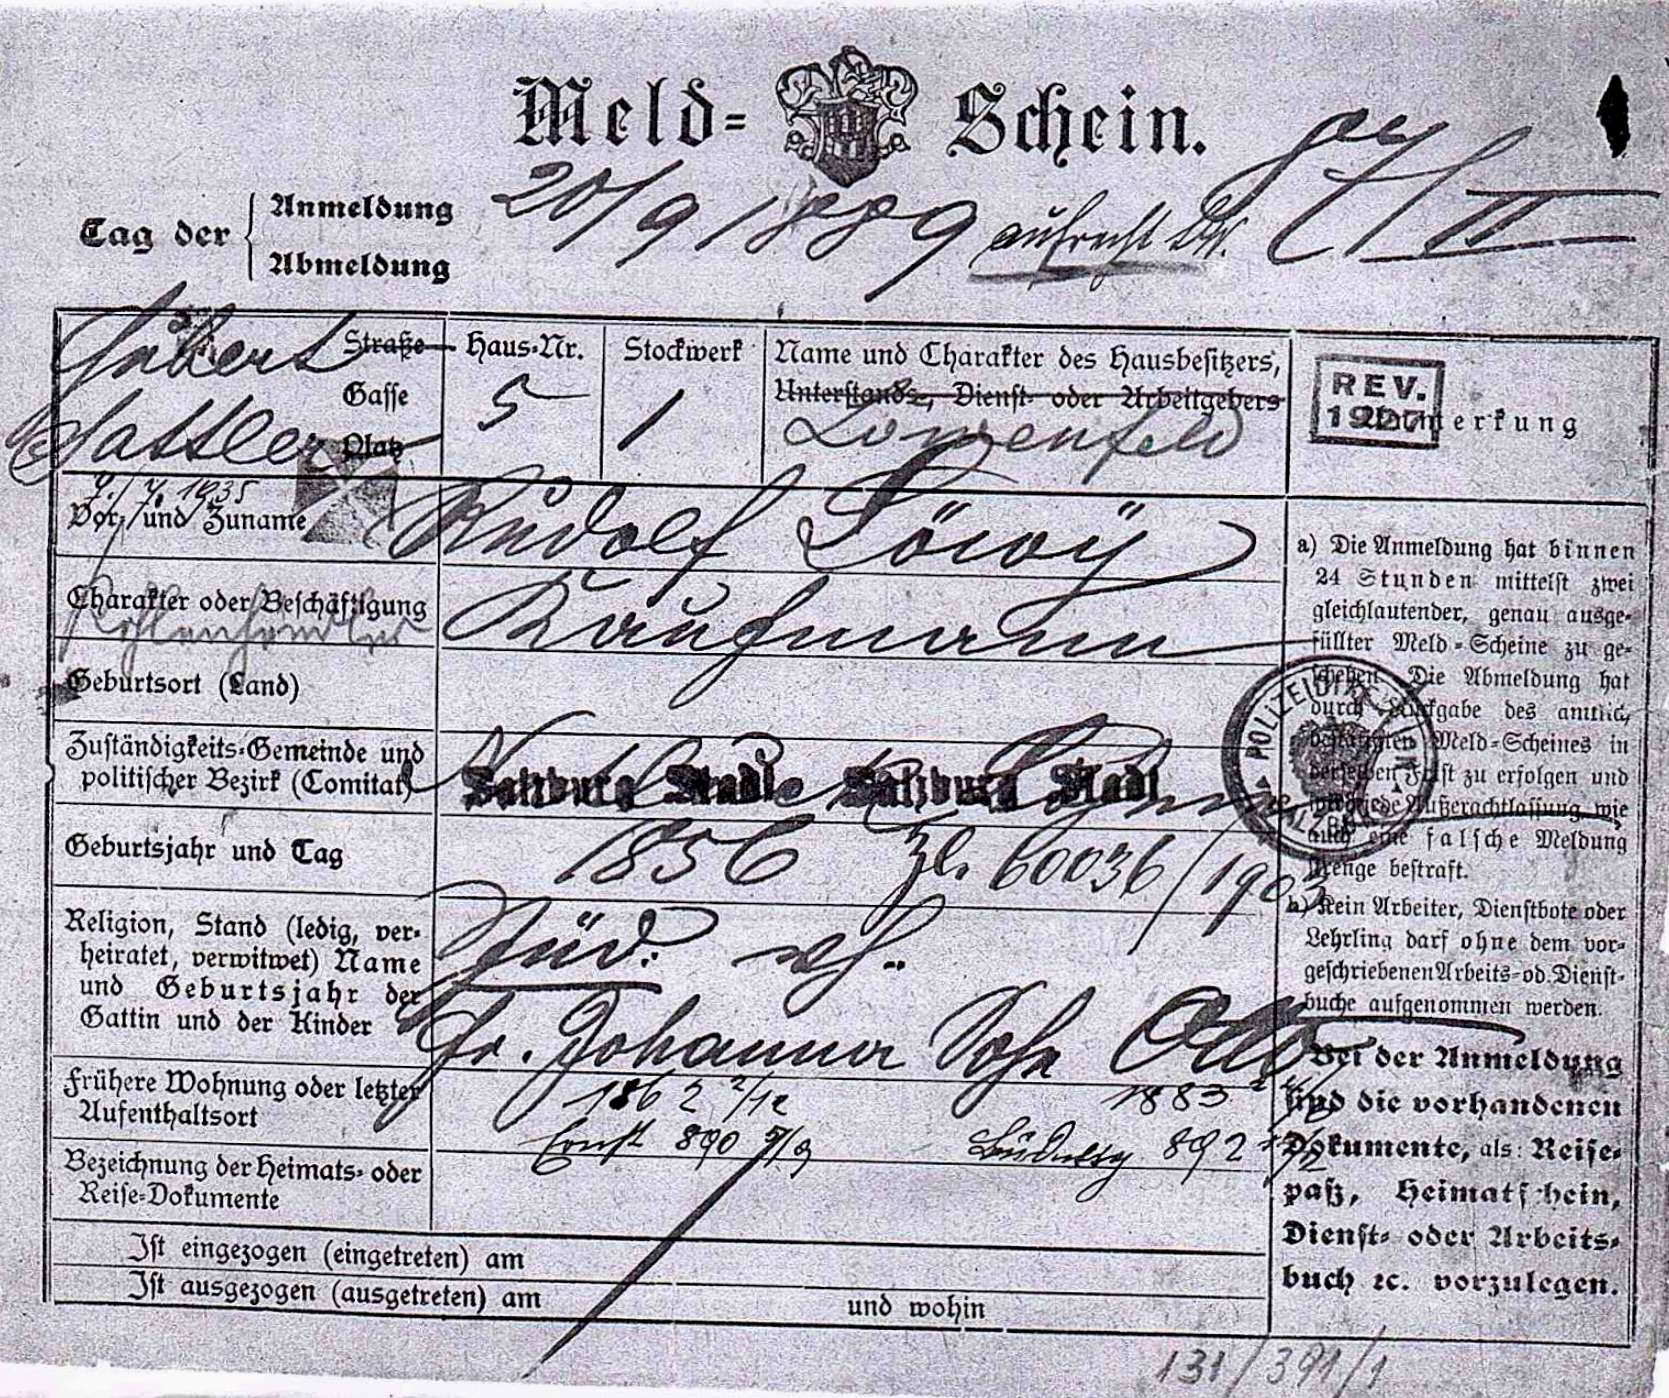 Meld= Schein.
Tag der
Anmeldung
Abmeldung
20/9 1889 aufrecht
II
Hubert
Sattler
Straße
Gasse
Platz
Haus-Nr.
5
Stockwerk
1
Name und Charakter des Hausbesitzers,
Unterstands-, Dienst- oder Arbeitgebers
Löwenfeld
REV.
Anmerkung
7./7. 1935
Vor- und Zuname
Rudolf Löwy
Charakter oder Beschäftigung
Kaufmann
Geburtsort (Land)
Zuständigkeits-Gemeinde und
politischer Bezirk (Comitat)
Salzburg Stadt Salzburg Stadt
Geburtsjahr und Tag
1856 Zl. 60036/1903
Religion, Stand (ledig, ver-
heiratet, verwitwet) Name
und Geburtsjahr der
Gattin und der Kinder
Jüd. vh.
Fr. Johanna Sohn Otto
Frühere Wohnung oder letzter
Aufenthaltsort
1862 2/12 1883
Ernst 890 5/9 Ludwig 892
Bezeichnung der Heimats- oder
Reise-Dokumente
Ist eingezogen (eingetreten) am
Ist ausgezogen (ausgetreten) am
und wohin
a) Die Anmeldung hat binnen
24 Stunden mittelst zwei
gleichlautender, genau ausge-
füllter Meld-Scheine zu ge-
schehen. Die Abmeldung hat
durch Rückgabe des amtlich
bestätigten Meld-Scheines in
derselben Frist zu erfolgen und
wird jede Außerachtlassung wie
auch eine falsche Meldung
strenge bestraft.
b) Kein Arbeiter, Dienstbote oder
Lehrling darf ohne dem vor-
geschriebenen Arbeits- od. Dienst-
buche aufgenommen werden.
Bei der Anmeldung
sind die vorhandenen
Dokumente, als: Reise-
paß, Heimatschein,
Dienst- oder Arbeits-
buch ꝛc. vorzulegen.
131/391/1